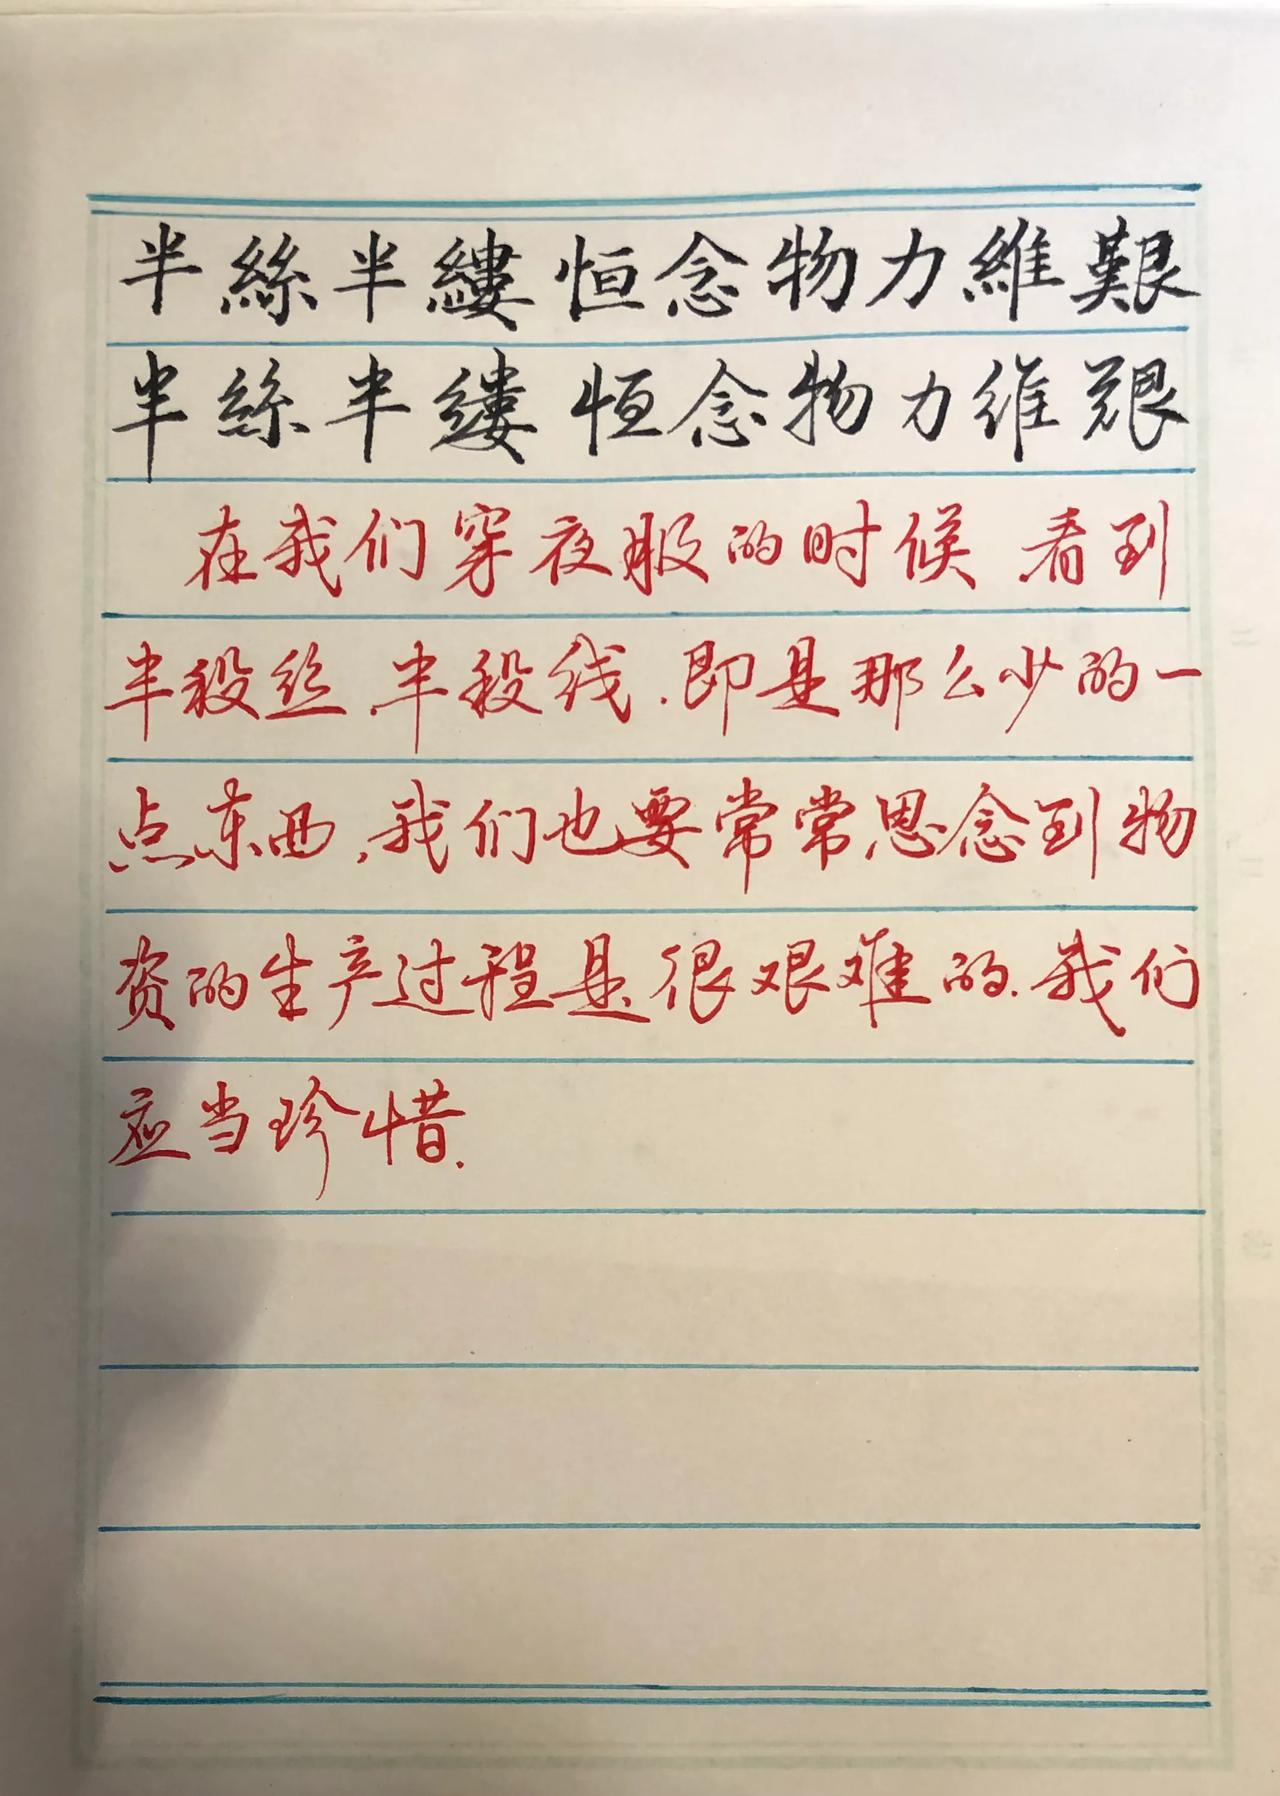 半絲半縷恒念物力維艱
半絲半缕恒念物力维艰
在我们穿夜服的时候 看到
半段丝,半段线.即是那么少的一
点东西,我们也要常常思念到物
资的生产过程是很艰难的.我们
应当珍惜.